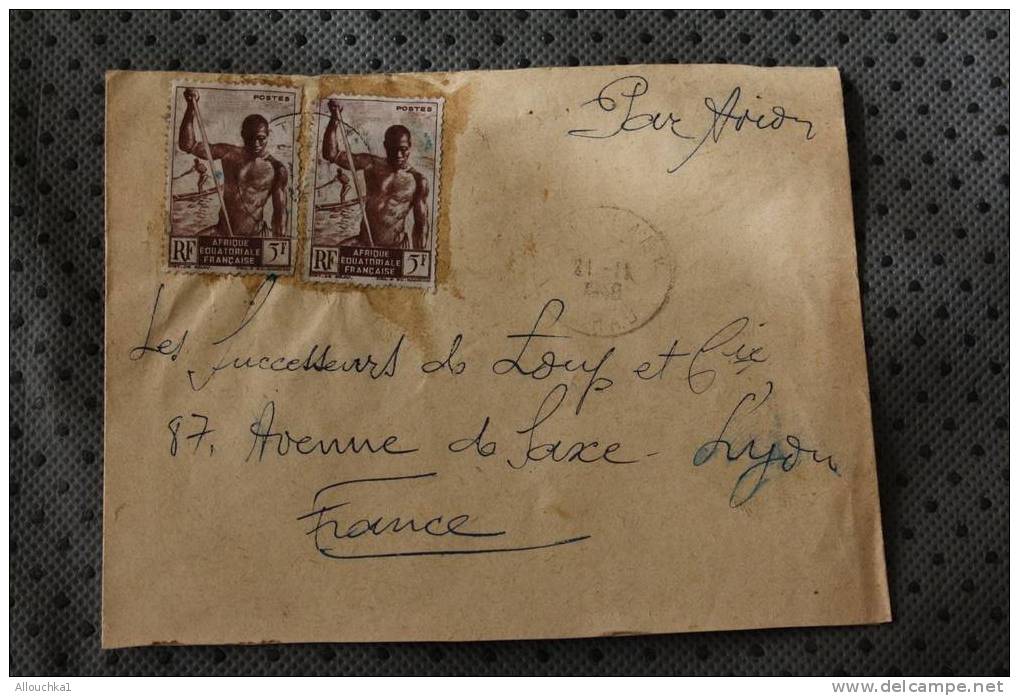 POSTES
POSTES
RF
AFRIQUE
ÉQUATORIALE
FRANÇAISE
5F
RF
AFRIQUE
ÉQUATORIALE
FRANÇAISE
5F
Par Avion
Les Successeurs de Loup et Cie
87, Avenue de Saxe - Lyon
France
Allouchka1
www.delcampe.net